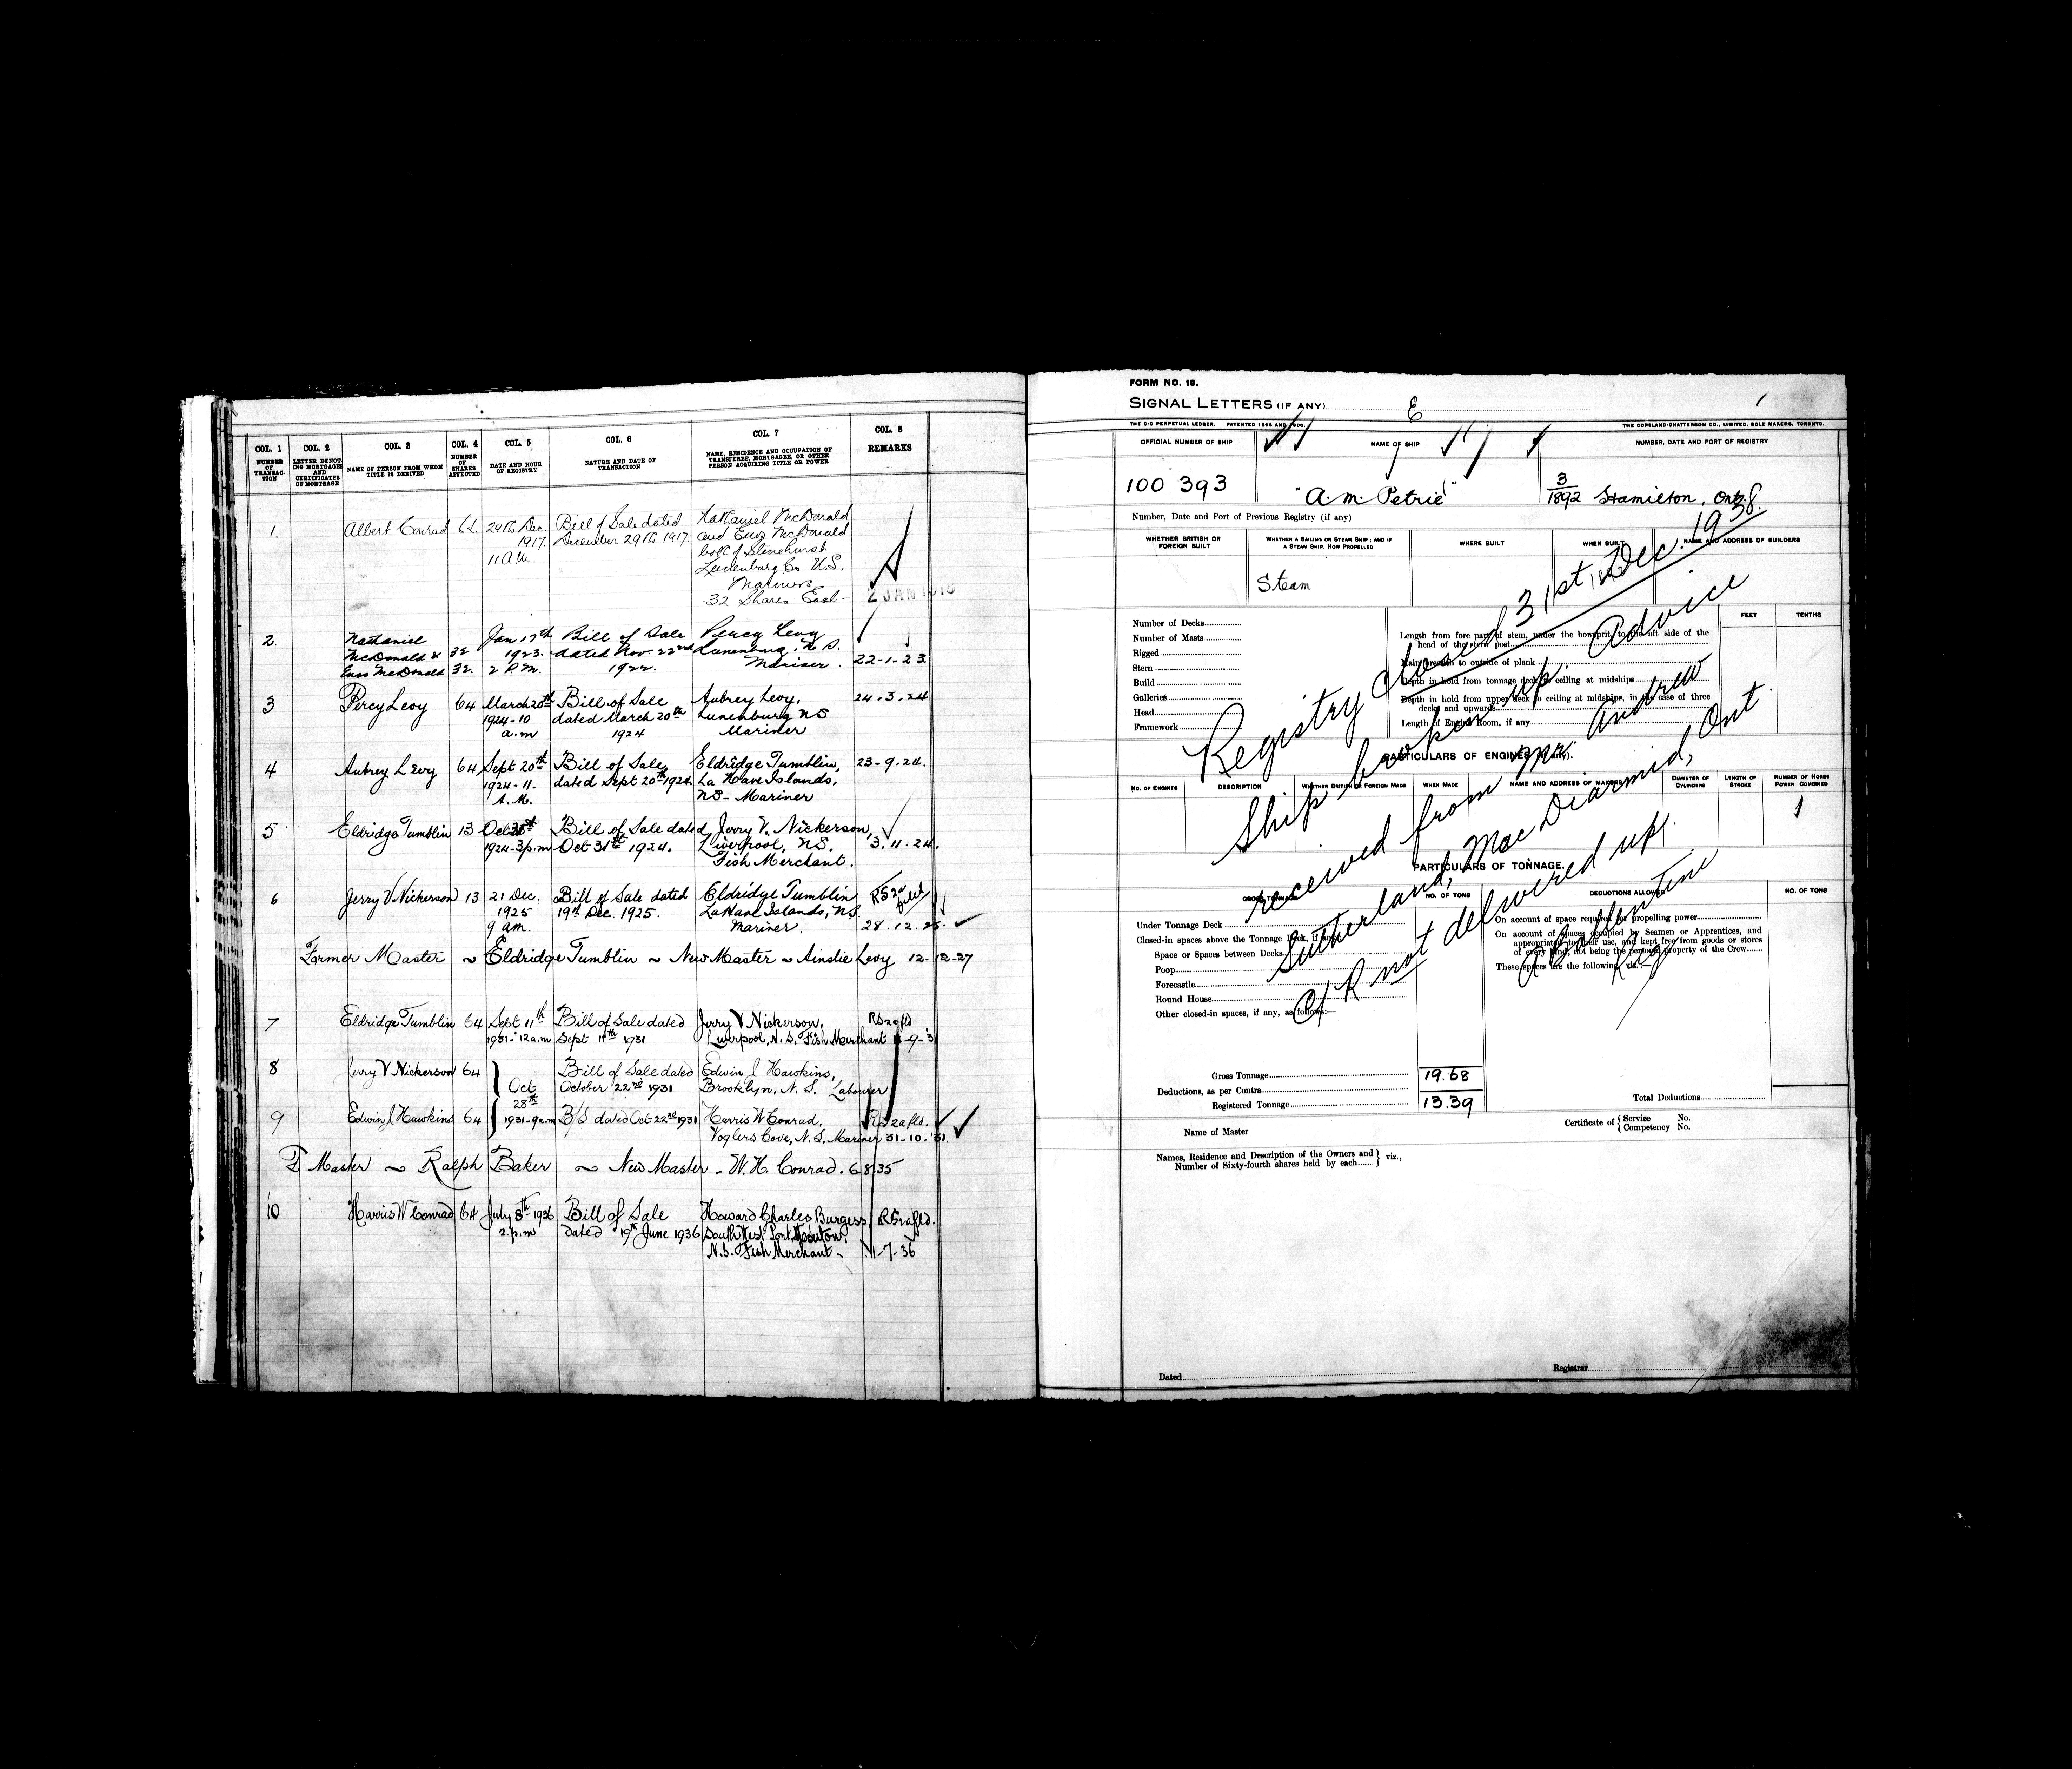 COL. 1
NUMBER OF TRANSAC-TION
COL. 2
LETTER DENOT-ING MORTGAGES AND CERTIFICATES OF MORTGAGE
COL. 3
NAME OF PERSON FROM WHOM TITLE IS DERIVED
COL. 4
NUMBER OF SHARES AFFECTED
COL. 5
DATE AND HOUR OF REGISTRY
COL. 6
NATURE AND DATE OF TRANSACTION
COL. 7
NAME, RESIDENCE AND OCCUPATION OF TRANSFEREE, MORTGAGEE, OR OTHER PERSON ACQUIRING TITLE OR POWER
COL. 8
REMARKS
1. Albert Conrad 29th Dec. Bill of Sale dated Nathaniel McDonald
1917. December 29th 1917. and Enos McDonald
11 a.m. both of
Lunenburg Co N.S.
Mariners
32 Shares Each -
2 JAN 1918
2. Nathaniel Jan 17th Bill of Sale Percy Levy
McDonald & 32 1923. dated Nov. 22nd Lunenburg. N.S.
Enos McDonald 32. 2 P.M. 1922. Mariner. 22-1-23
3 Percy Levy 64 March 20th Bill of Sale Aubrey Levy, 24-3-24
1924-10 dated March 20th Lunenburg NS
a.m 1924 Mariner
4 Aubrey Levy 64 Sept 20th Bill of Sale, Eldridge Tumblin, 23-9-24.
1924-11- dated Sept 20th 1924. La Have Islands,
A.M. NS- Mariner
5 Eldridge Tumblin 13 Oct 31st Bill of Sale dated, Jerry V. Nickerson,
1924-3p.m Oct 31st 1924. Liverpool, NS. 3.11.24.
Fish Merchant.
6 Jerry V Nickerson 13 21 Dec. Bill of Sale dated Eldridge Tumblin
1925 19th Dec. 1925. LaHave Islands, NS.
9 am. Mariner. 28.12.25.
Former Master ~ Eldridge Tumblin ~ New Master ~ Ainslie Levy 12-12-27
7 Eldridge Tumblin 64 Sept 11th Bill of Sale dated Jerry V Nickerson,
1931-12a.m Sept 11th 1931 Liverpool, N.S. Fish Merchant
8 Jerry V Nickerson 64 Bill of Sale dated Edwin J Hawkins,
Oct October 22nd 1931 Brooklyn, N.S. Labourer
28th
9 Edwin J Hawkins 64 1931-9a.m B/S dated Oct 22nd 1931 Harris W Conrad,
Voglers Cove, N.S. Mariner 31-10-'31.
F Master ~ Ralph Baker ~ New Master - W. H. Conrad. 6 8 35
10 Harris W Conrad 64 July 8th 1936 Bill of Sale Howard Charles Burgess,
2.p.m dated 19th June 1936 South West Port Mouton,
N.S. Fish Merchant - 11-7-36
FORM NO. 19.
SIGNAL LETTERS (IF ANY) E
THE C-C PERPETUAL LEDGER. PATENTED 1898 AND 1900.
THE COPELAND-CHATTERSON CO., LIMITED, SOLE MAKERS, TORONTO.
OFFICIAL NUMBER OF SHIP
NAME OF SHIP
NUMBER, DATE AND PORT OF REGISTRY
100 393
"A. M. Petrie"
3/1892 Hamilton, Ont.
Number, Date and Port of Previous Registry (if any)
WHETHER BRITISH OR FOREIGN BUILT
WHETHER A SAILING OR STEAM SHIP; AND IF A STEAM SHIP, HOW PROPELLED
WHERE BUILT
WHEN BUILT
NAME AND ADDRESS OF BUILDERS
Steam
Number of Decks
Number of Masts
Rigged
Stern
Build
Galleries
Head
Framework
Length from fore part of stem, under the bowsprit, to the aft side of the head of the stern post
Main breadth to outside of plank
Depth in hold from tonnage deck to ceiling at midships
Depth in hold from upper deck to ceiling at midships, in the case of three decks and upwards
Length of Engine Room, if any
FEET
TENTHS
Registry closed 31st, Dec. 1938.
Ship broken up. Advice
received from Mr. Andrew
Sutherland, MacDiarmid, Ont.
C/R not delivered up.
PARTICULARS OF ENGINES (if any).
NO. OF ENGINES
DESCRIPTION
WHETHER BRITISH OR FOREIGN MADE
WHEN MADE
NAME AND ADDRESS OF MAKERS
DIAMETER OF CYLINDERS
LENGTH OF STROKE
NUMBER OF HORSE POWER COMBINED
1
PARTICULARS OF TONNAGE.
GROSS TONNAGE.
NO. OF TONS
DEDUCTIONS ALLOWED
NO. OF TONS
Under Tonnage Deck
Closed-in spaces above the Tonnage Deck, if any
Space or Spaces between Decks
Poop
Forecastle
Round House
Other closed-in spaces, if any, as follows:—
On account of space required for propelling power
On account of spaces occupied by Seamen or Apprentices, and appropriated to their use, and kept free from goods or stores of every kind, not being the personal property of the Crew
These spaces are the following, viz.:—
Gross Tonnage 19.68
Deductions, as per Contra
Registered Tonnage 13.39
Total Deductions
Name of Master
Certificate of { Service No.
Competency No.
Names, Residence and Description of the Owners and } viz.,
Number of Sixty-fourth shares held by each
Dated
Registrar